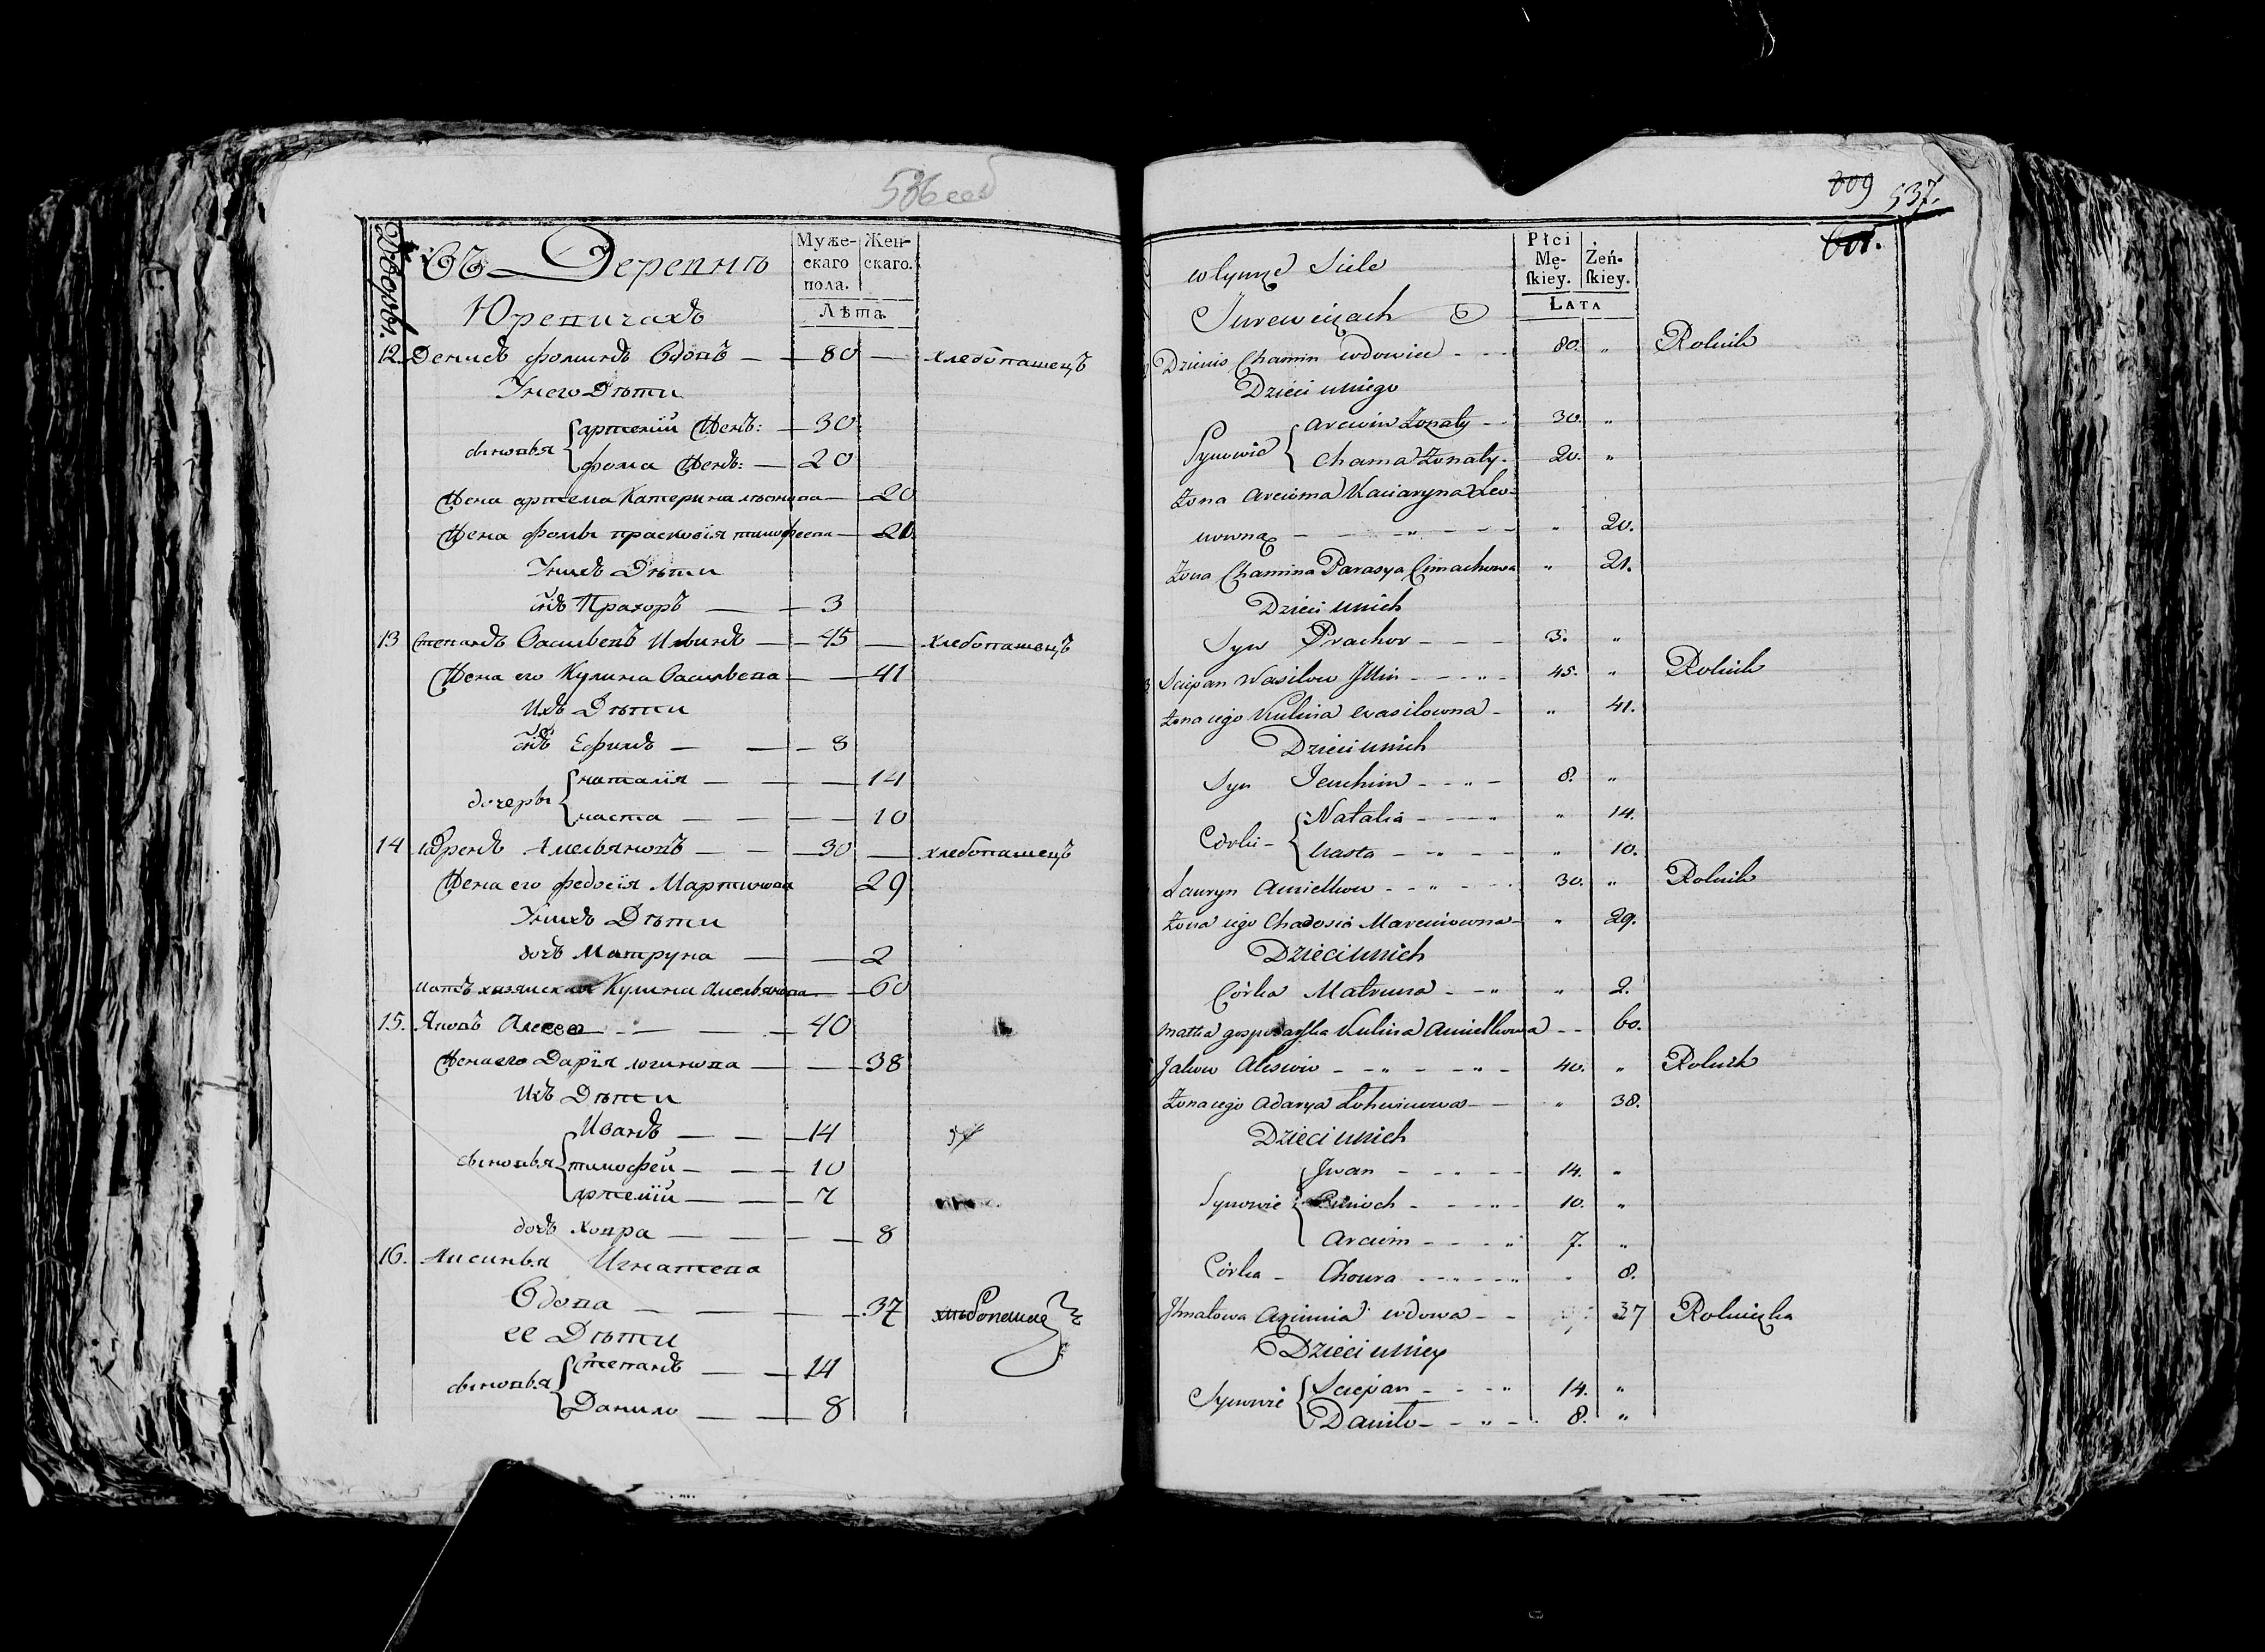 536 об
Дворы.
Въ Деревнѣ
Муже-
скаго
пола.
Жен-
скаго.
Лѣта.
Юревичахъ
12. Денисъ Фоминъ Вдовъ — 80 — хлебопашецъ
У него Дѣти
сыновья { артемій Жен: — 30
фома Жен: — 20
Жена артема Катерина — 20
Жена фомы прасковія тимофеева — 21
У нихъ Дѣти
сынъ Прахоръ — 3
13 Степанъ Васильевъ Ильинъ — 45 — хлебопашецъ
Жена его Кулина Васильева — 41
Ихъ Дѣти
сынъ Ефимъ — 8
дочеры { наталія — 14
наста — 10
14 Амельяновъ — 30 — хлебопашецъ
Жена его федосія Мартинова 29
У нихъ Дѣти
дочь Матруна — 2
мать хозяйская Кулина Амельянова — 60
15. Яковъ Алесев — 40
Жена его Дарія логинова — 38
Ихъ Дѣти
сыновья { Иванъ — 14
тимофей — 10
артемій — 7
дочь ховра — 8
16. Аксинья Игнатева
Вдова — 37
ее Дѣти
сыновья { степанъ — 14
Данило — 8
809 537.
601.
w łynnze Siele
Płci
Mę-
skiey.
Żeń-
skiey.
LATA
Jurewiczach
Dzienis Chamin wdowiec - 80. " Rolnik
Dzieci u niego
Synowie { Arciom Żonaty - 30. "
Chama Żonaty. 20. "
Żona Arcioma Kaciaryna Leo-
nowna - " 20.
Żona Chamina Parasya Cimachowa " 21.
Dzieci u nich
Syn Prachor - 3. "
Sciepan Wasilow Illin - 45. " Rolnik
Żona iego Kulina Wasilowna - " 41.
Dzieci u nich
Syn Jeuchim - 8. "
Córki - { Natalia - " 14.
Nasta - " 10.
Lauryn Amiellow - 30. " Rolnik
Żona iego Chadosia Marciniowna - " 29.
Dzieci u nich
Córka Matruna - " 2.
Matka gospodarska Kulina Amielkowa - 60.
Jakow Alesiew - 40. " Rolnik
Żona iego Adarya Łohwinowa - " 38.
Dzieci u nich
Synowie { Iwan - 14. "
Cimoch - 10. "
Arciom - 7. "
Córka - Choura - " 8.
Ihnatowa Axiennia wdowa - 37 Rolniczka
Dzieci u niey
Synowie { Sciepan - 14. "
Daniło - 8. "